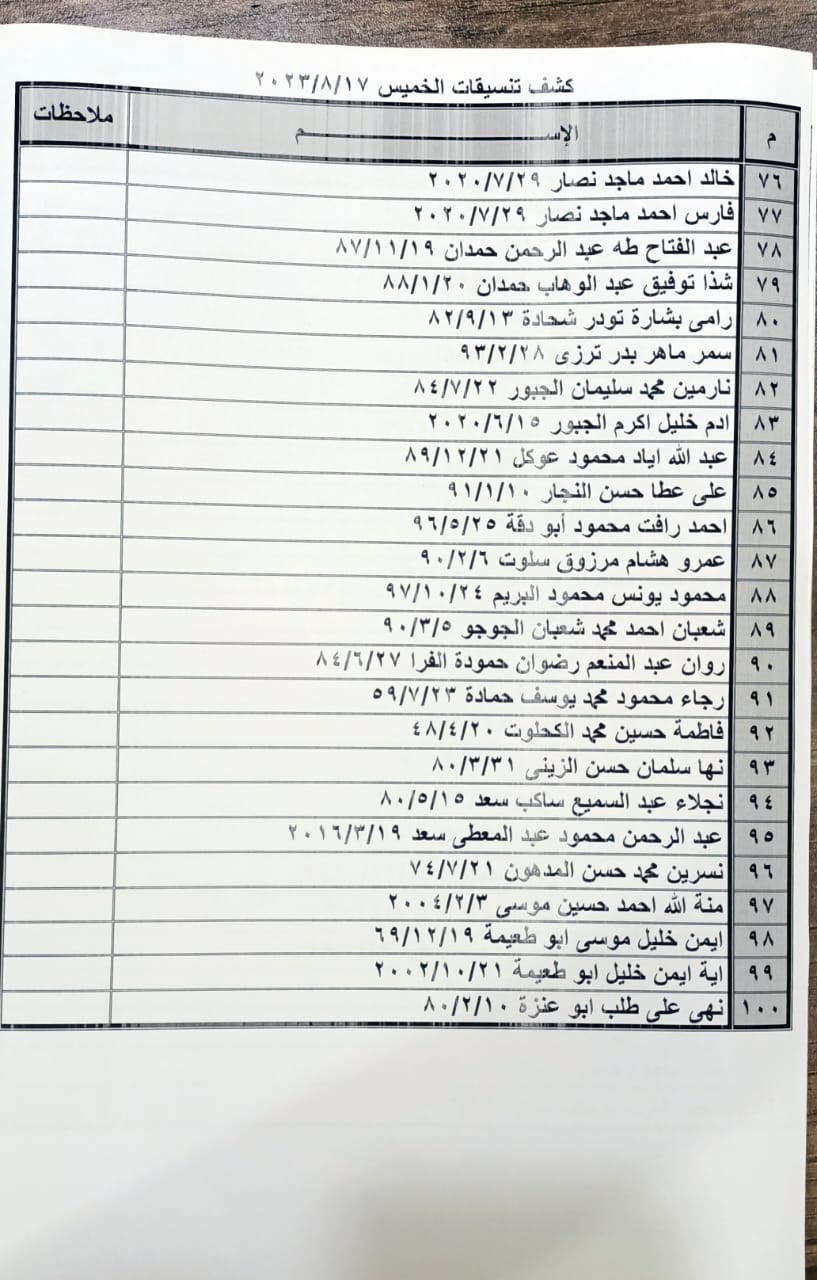 كشف تنسيقات الخميس ٢٠٢٣/٨/١٧
م الإســـــــم ملاحظات
٧٦ خالد احمد ماجد نصار ٢٠٢٠/٧/٢٩
٧٧ فارس احمد ماجد نصار ٢٠٢٠/٧/٢٩
٧٨ عبد الفتاح طه عبد الرحمن حمدان ٨٧/١١/١٩
٧٩ شذا توفيق عبد الوهاب حمدان ٨٨/١/٢٠
٨٠ رامى بشارة تودر شحادة ٨٢/٩/١٣
٨١ سمر ماهر بدر ترزى ٩٣/٢/٢٨
٨٢ نارمين محمد سليمان الجبور ٨٤/٧/٢٢
٨٣ ادم خليل اكرم الجبور ٢٠٢٠/٦/١٥
٨٤ عبد الله اياد محمود عوكل ٨٩/١٢/٢١
٨٥ على عطا حسن النجار ٩١/١/١٠
٨٦ احمد رافت محمود أبو دقة ٩٦/٥/٢٥
٨٧ عمرو هشام مرزوق سلوت ٩٠/٢/٦
٨٨ محمود يونس محمود البريم ٩٧/١٠/٢٤
٨٩ شعبان احمد محمد شعبان الجوجو ٩٠/٣/٥
٩٠ روان عبد المنعم رضوان حمودة الفرا ٨٤/٦/٢٧
٩١ رجاء محمود محمد يوسف حمادة ٥٩/٧/٢٣
٩٢ فاطمة حسين محمد الكحلوت ٤٨/٤/٢٠
٩٣ نها سلمان حسن الزينى ٨٠/٣/٣١
٩٤ نجلاء عبد السميع ساكب سعد ٨٠/٥/١٥
٩٥ عبد الرحمن محمود عبد المعطى سعد ٢٠١٦/٣/١٩
٩٦ نسرين محمد حسن المدهون ٧٤/٧/٢١
٩٧ منة الله احمد حسين موسى ٢٠٠٤/٢/٣
٩٨ ايمن خليل موسى ابو طعيمة ٦٩/١٢/١٩
٩٩ اية ايمن خليل ابو طعيمة ٢٠٠٢/١٠/٢١
١٠٠ نهى على طلب ابو عنزة ٨٠/٢/١٠